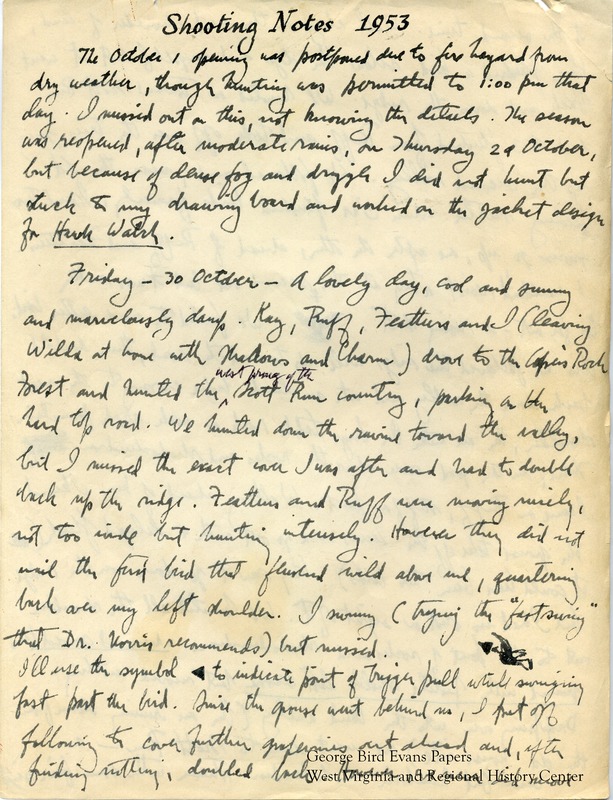 Shooting Notes 1953
The October 1 opening was postponed due to fire hazard from
dry weather, though hunting was permitted to 1:00 pm that
day. I missed out on this, not knowing the details. The season
was reopened, after moderate rains, on Thursday 29 October,
but because of dense fog and drizzle I did not hunt but
stuck to my drawing board and worked on the jacket design
for Hawk Watch.
Friday - 30 October - A lovely day, cool and sunny
and marvelously damp. Kay, Ruff, Feathers and I (leaving
Wilda at home with Shadows and Charm) drove to the Coopers Rock
west prong of the
Forest and hunted the Scott Run country, parking on the
hard top road. We hunted down the ravine toward the valley,
but I missed the exact cover I was after and had to double
back up the ridge. Feathers and Ruff were moving nicely,
not too wide but hunting intensely. However they did not
nail the first bird that flushed wild above me, quartering
back over my left shoulder. I swung (trying the "fast swing"
that Dr. Norris recommends) but missed.
I'll use the symbol ◄ to indicate point of trigger pull while swinging
fast past the bird. Since the grouse went behind us, I put off
following to cover further grapevines out ahead and, after
finding nothing, doubled back
George Bird Evans Papers
West Virginia and Regional History Center